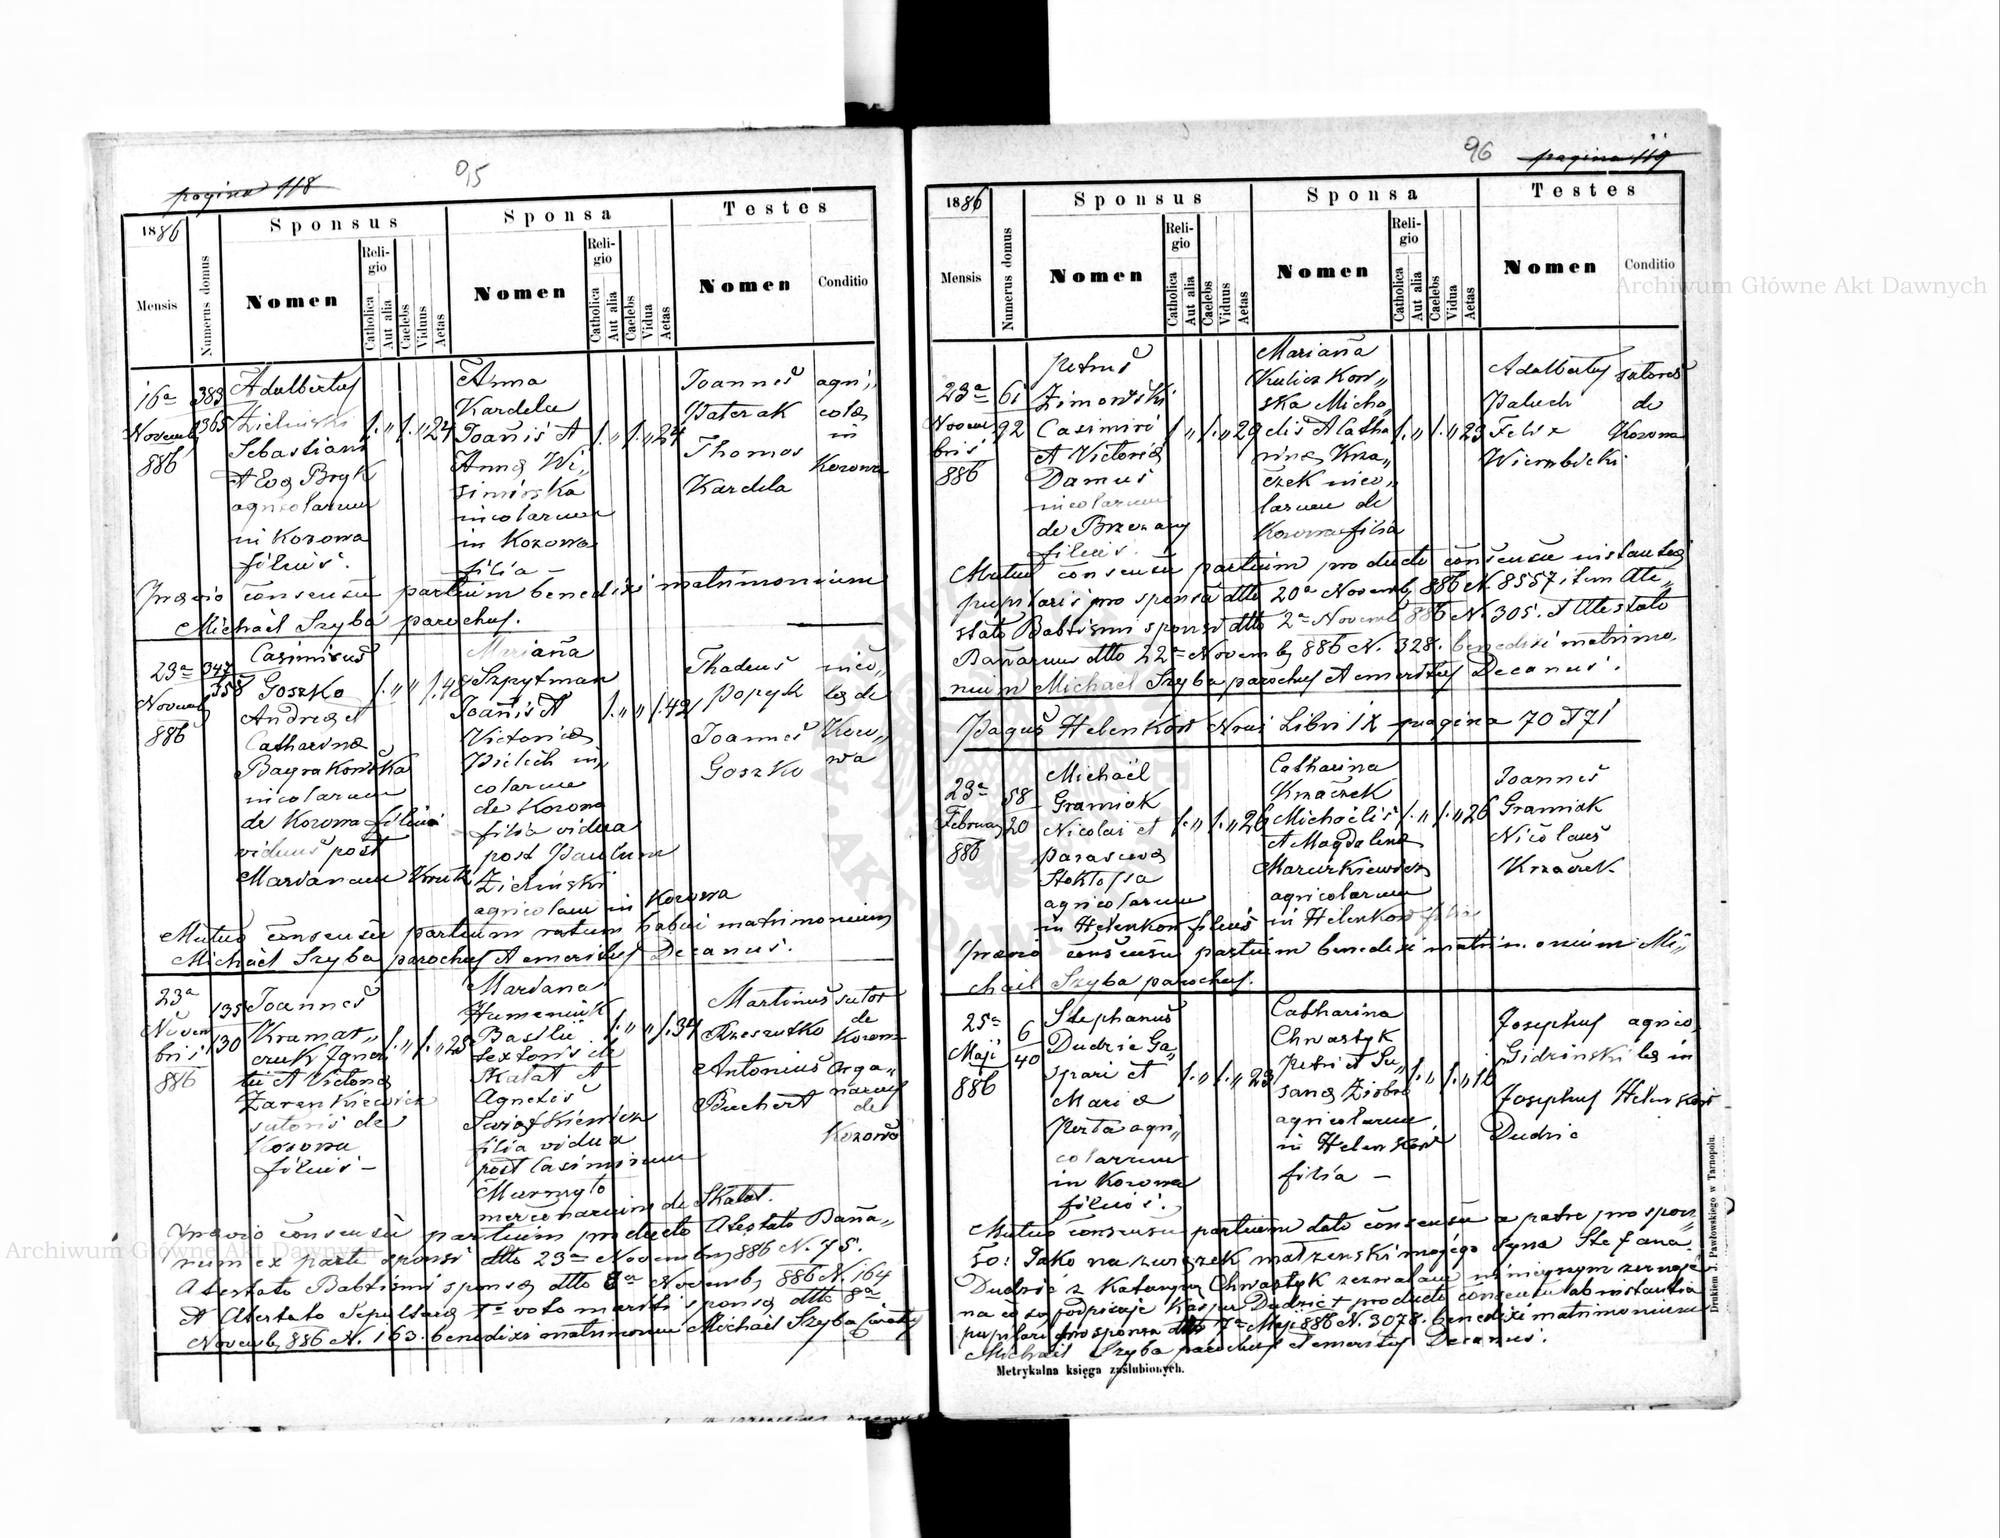 pagina 118
95
1886
Sponsus
Sponsa
Testes
Mensis
Numerus domus
Nomen
Religio
Catholica
Aut alia
Caelebs
Viduus
Aetas
Nomen
Religio
Catholica
Aut alia
Caelebs
Vidua
Aetas
Nomen
Conditio
16a
Novemb
886
383
365
Adalbertus
Zielinski
Sebastiani
et Evae Bryk
agricolarum
in Kozowa
filius.
24
Anna
Kardela
Joanis et
Annae Wi„
simirska
incolarum
in Kozowa
filia –
24
Joannes
Paterak
Thomas
Kardela
agri„
colae
in
Kozowa
Praevio consensu partium benedixi matrimonium
Michael Szyba parochus.
23a
Novemb
886
347
358
Casimirus
Goszko
Andreae et
Catharinae
Bayrakowska
incolarum
de Kozowa filius
viduus post
Mariannam Kruth
48
Mariana
Szpytman
Joanis et
Victoriae
Pielich in„
colarum
de Kozowa
filia vidua
post Paulum
Zielinski
agricolam in Kozowa
42
Thadeus
Popyk
Joannes
Goszko
inco„
lae de
Kozo„
wa
Mutuo consensu partium ratum habui matrimonium
Michael Szyba parochus et emeritus Decanus.
23a
Novem
bris
886
135
130
Joannes
Kramar„
czuk Igna
tii et Victoriae
Zarenkiewicz
sutoris de
Kozowa
filius –
25
Mariana
Humeniuk
Basilii
textoris de
Skalat et
Agnetis
filia vidua
post Casimirum
mercenarium de Skalat.
34
Martinus
Rzeszutko
Antonius
Buchert
sutor
de
Kozowa
orga„
narius
de
Kozowa
Praevio consensu partium producto Atestato Bana„
rum ex parte sponsi dtto 23a Novemb 886 N. 75.
Atestato Babtismi sponsae dtto 8a Novemb 886 N. 164
et Atestato Sepulturae 1o voto mariti sponsae dtto 8a
Novemb 886 N. 163. benedixi matrimonium Michael Szyba
96
pagina 119
1886
Sponsus
Sponsa
Testes
Mensis
Numerus domus
Nomen
Religio
Catholica
Aut alia
Caelebs
Viduus
Aetas
Nomen
Religio
Catholica
Aut alia
Caelebs
Vidua
Aetas
Nomen
Conditio
23a
Novem
bris
886
61
92
Petrus
Zimowski
Casimiri
et Victoriae
Damus
incolarum
de Brzezany
filius.
29
Mariana
Kuliczkow„
ska Micha„
elis et Catha
rinae Krza„
czek inco„
larum de
Kozowa filia
23
Adalbertus
Paluch
Felix
Wierzbicki
sutores
de
Kozowa
Mutuo consensu partium producto consensu instantiae
pupilaris pro sponsa dtto 20a Novemb 886 N. 8557 item Ate„
stato Babtismi sponsi dtto 2a Novemb 886 N. 305. et Atestato
Banarum dtto 22a Novemb 886 N. 328. benedixi matrimo„
nium Michael Szyba parochus et emeritus Decanus.
Pagus Helenkow Nrus Libri IX pagina 70 et 71
23a
Februar
886
58
20
Michael
Gramiak
Nicolai et
Parascevae
Stoktosa
agricolarum
in Helenkow filius
26
Catharina
Krzaczek
Michaelis
et Magdalenae
Mazurkiewicz
agricolarum
in Helenkow filia
26
Joannes
Gramiak
Nicolaus
Krzaczek.
Praevio consensu partium benedixi matrimonium Mi„
chael Szyba parochus.
25a
Maji
886
6
40
Stephanus
Dudzic Ga„
spari et
Mariae
Perta agri„
colarum
in Kozowa
filius.
23
Catharina
Chwastyk
Petri et Su„
sanae Ziobro
agricolarum
in Helenkow
filia –
18
Josephus
Gidzinski
Josephus
Dudzic
agrico„
lae in
Helenkow
Mutuo consensu partium dato consensu a patre pro spon„
so: Jako na zwązek małzenski mojego syna Stefana
Dudzic z Katarzyną Chwastyk zezwalam w niniejszym zeznaje
na co się podpisuje Kasper Dudzic + producto consensu ab instantia
pupilari pro sponsa dtto 7a Maji 886 N. 3078. benedixi matrimonium
Michael Szyba parochus et emeritus Decanus.
Metrykalna księga zaślubionych.
Drukiem J. Pawłowskiego w Tarnopolu.
Archiwum Główne Akt Dawnych
Archiwum Główne Akt Dawnych